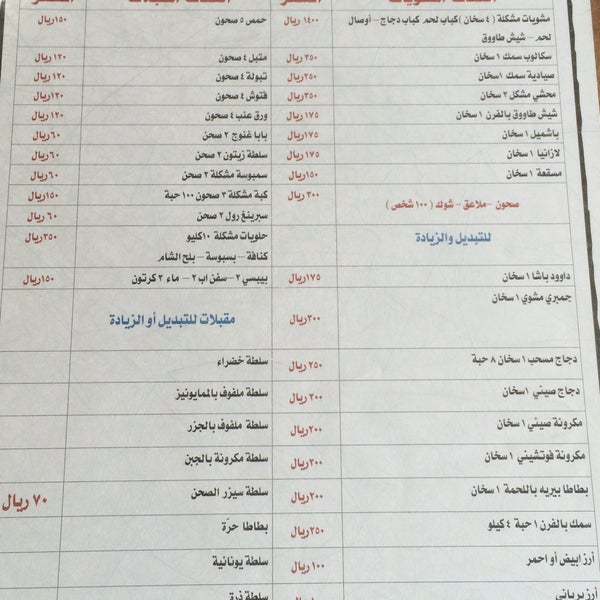 مشويات مشكلة (٤ سخان) كباب لحم كباب دجاج – أوصال
لحم – شيش طاووق
١٤٠٠ ريال
حمص ٥ صحون
١٥٠ريال
سكالوب سمك ١ سخان
٢٥٠ ريال
متبل ٤ صحون
١٢٠ ريال
صيادية سمك ١ سخان
٢٥٠ريال
تبولة ٤ صحون
١٢٠ريال
محشي مشكل ٢ سخان
٢٥٠ريال
فتوش ٤ صحون
١٢٠ ريال
شيش طاووق بالفرن ١ سخان
١٧٥ريال
ورق عنب ٤ صحون
١٢٠ ريال
باشميل ١ سخان
١٧٥ريال
بابا غنوج ٢ صحن
٦٠ريال
لازانيا ١ سخان
١٧٥ ريال
سلطة زيتون ٢ صحن
٦٠ريال
مسقعة ١ سخان
١٥٠ريال
سمبوسة مشكلة ٢ صحن
٦٠ريال
صحون – ملاعق – شوك (١٠٠ شخص)
٣٠٠ ريال
كبة مشكلة ٣ صحون ١٠٠ حبة
١٥٠ريال
سبرينغ رول ٢ صحن
٦٠ ريال
للتبديل والزيادة
حلويات مشكلة ١٠كليو
كنافة – بسبوسة – بلح الشام
٣٥٠ريال
داوود باشا ١ سخان
١٧٥ريال
بيبسي ٢– سفن اب ٢– ماء ٢ كرتون
١٥٠ريال
جمبري مشوي ١ سخان
٣٠٠ريال
مقبلات للتبديل أو الزيادة
دجاج مسحب ١ سخان ٨ حبة
٢٥٠ ريال
سلطة خضراء
دجاج صيني ١ سخان
٢٠٠ ريال
سلطة ملفوف بالممايونيز
مكرونة صيني ١ سخان
٢٠٠ريال
سلطة ملفوف بالجزر
مكرونة فوتشيني ١ سخان
٢٠٠ريال
سلطة مكرونة بالجبن
بطاطا بيريه باللحمة ١ سخان
٢٠٠ريال
سلطة سيزر الصحن
٧٠ ريال
سمك بالفرن ١ حبة ٤ كيلو
٢٥٠ريال
بطاطا حرّة
أرز ابيض أو احمر
١٠٠ ريال
سلطة يونانية
أرز برياني
سلطة ذرة